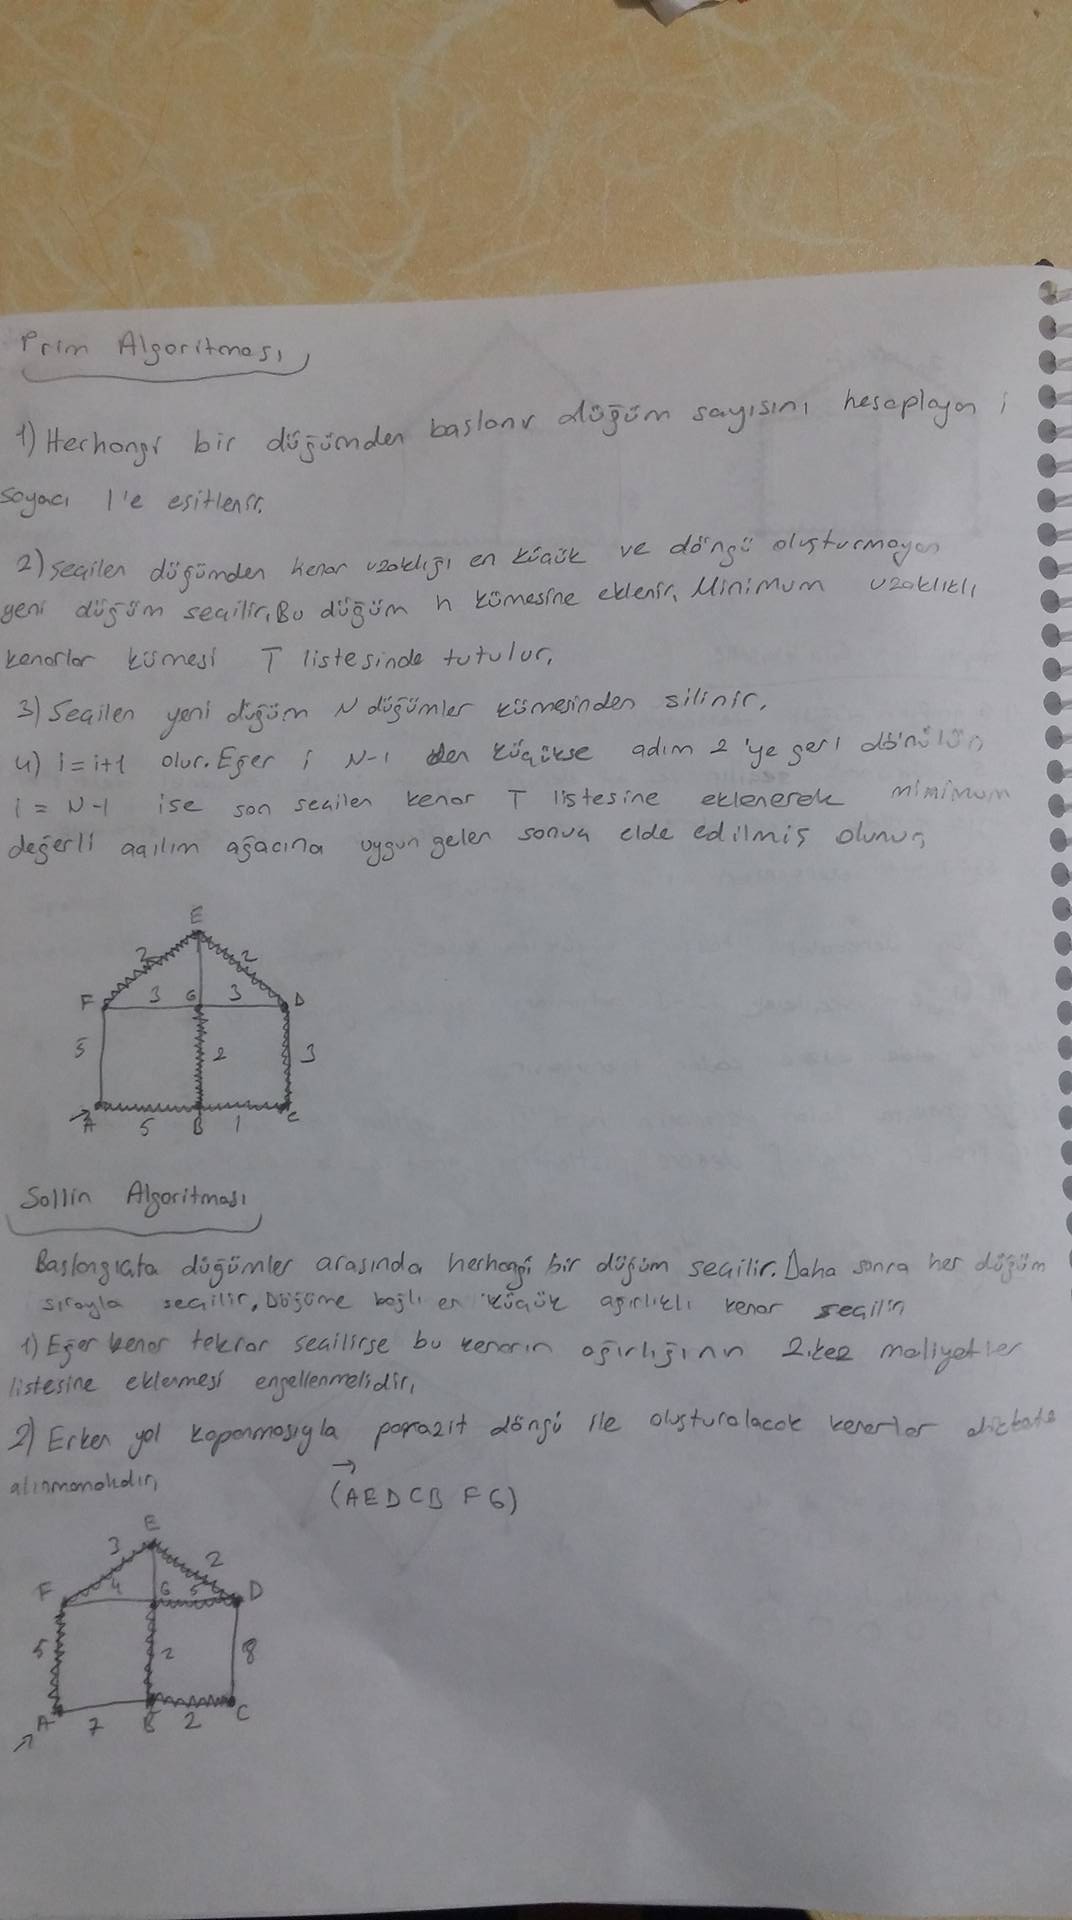 Prim Algoritması
1) Herhangi bir düğümden baslanır düğüm sayısını hesaplayan i
sayacı 1'e esitlenir.
2) seçilen düğümden kenar uzaklığı en küçük ve döngü oluşturmayan
yeni düğüm seçilir. Bu düğüm n kümesine eklenir. Minimum uzaklıklı
kenarlar kümesi T listesinde tutulur.
3) Seçilen yeni düğüm N düğümler kümesinden silinir.
4) i=i+1 olur. Eğer i N-1 den küçükse adım 2'ye geri dönülür
i = N-1 ise son seçilen kenar T listesine eklenerek minimum
değerli açılım ağacına uygun gelen sonuç elde edilmiş olunur.
E
2 2
F 3 G 3 D
5 2 3
A 5 B 1 C
Sollin Algoritması
Baslangıçta düğümler arasında herhangi bir düğüm seçilir. Daha sonra her düğüm
sırayla seçilir. Düğüme bağlı en küçük ağırlıklı kenar seçilir
1) Eğer kenar tekrar seçilirse bu kenarın ağırlığının 2.kez maliyetler
listesine eklenmesi engellenmelidir.
2) Erken yol kapanmasıyla parazit döngü ile oluşturalacak kenarlar dikkate
alınmamalıdır.
(AEDCB FG)
E
3 2
F 4 G 5 D
5 2 8
A 7 B 2 C